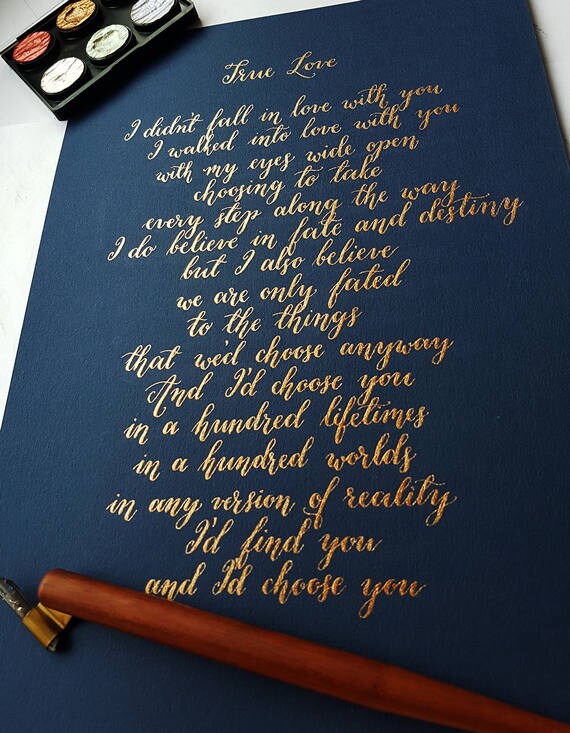 True Love
I didn't fall in love with you
I walked into love with you
with my eyes wide open
choosing to take
every step along the way
I do believe in fate and destiny
but I also believe
we are only fated
to the things
that we'd choose anyway
And I'd choose you
in a hundred lifetimes
in a hundred worlds
in any version of reality
I'd find you
and I'd choose you